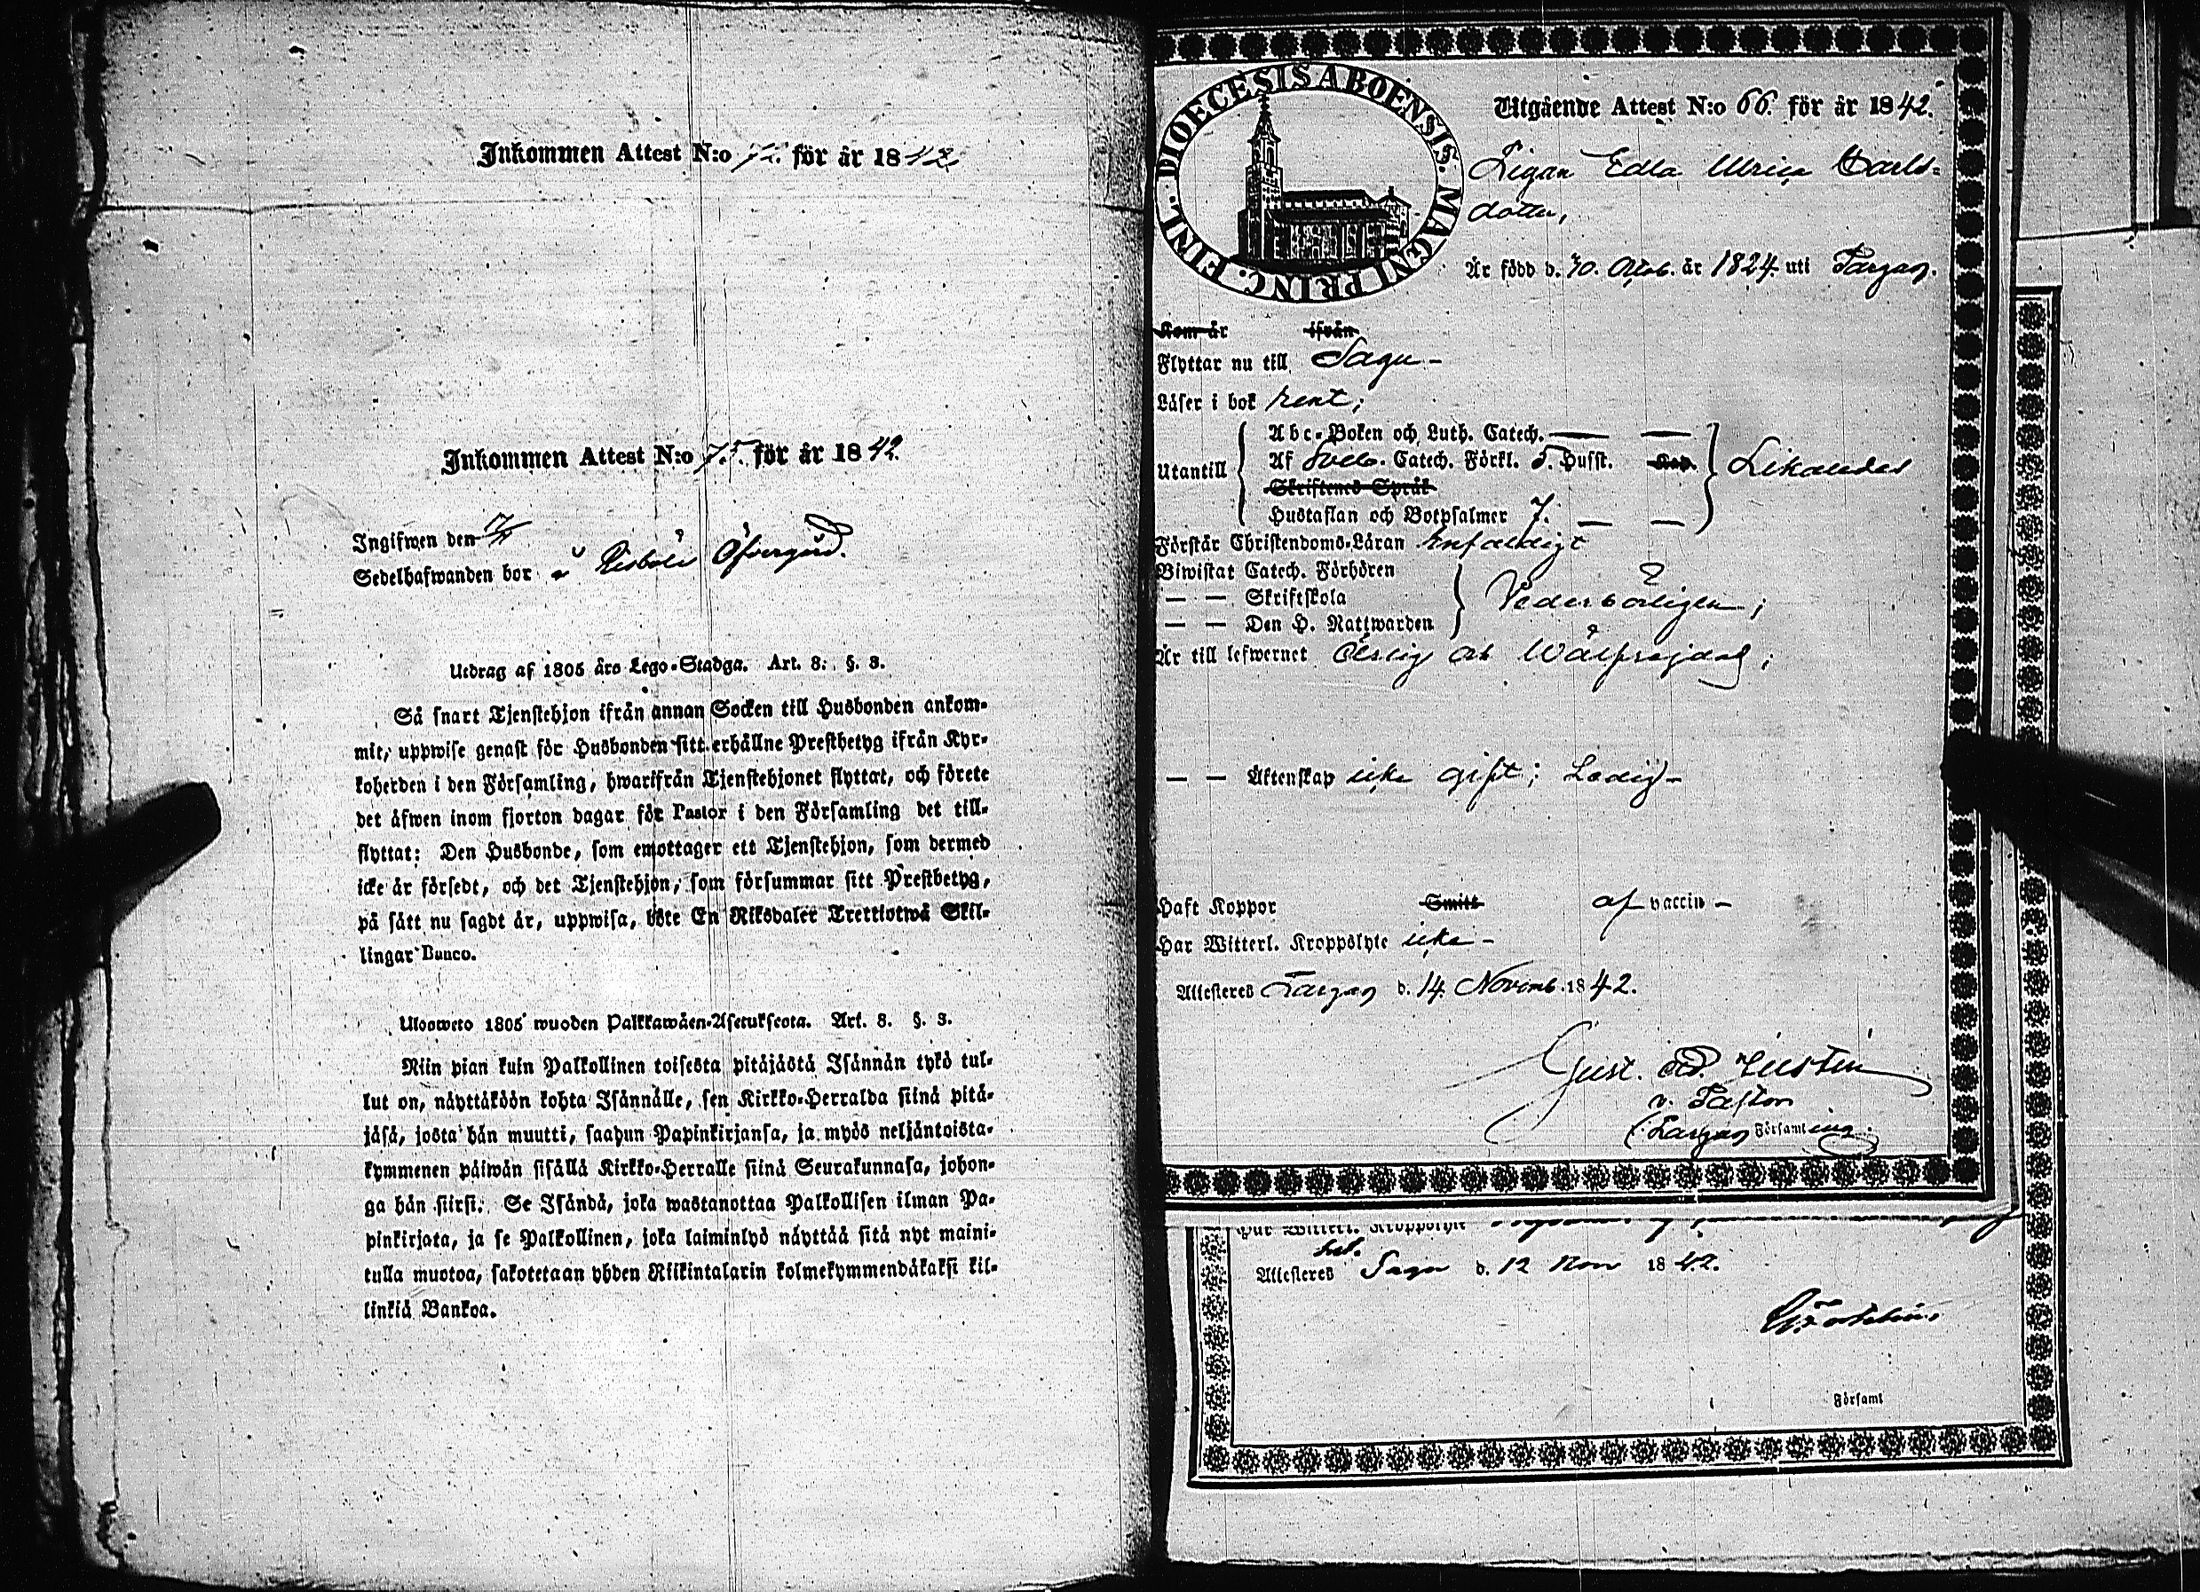 Inkommen Attest N:o 72. för år 1842.
Inkommen Attest N:o 73. för år 1842.
Ingifwen den
Sedelhafwanden bor å Öfvergård.
Utdrag af 1805 års Lego-Stadga. Art. 8. §. 3.
Så snart Tjenstehjon ifrån annan Socken till Husbonden ankom-
mit, uppwise genast för Husbonden sitt erhållne Prestbetyg ifrån Kyr-
koherden i den Församling, hwarifrån Tjenstehjonet flyttat, och förete
det åfwen inom fjorton dagar för Pastor i den Församling det till-
flyttat: Den Husbonde, som emottager ett Tjenstehjon, som dermed
icke år försedt, och det Tjenstehjon, som försummar sitt Prestbetyg,
på sått nu sagdt år, uppwisa, böte En Riksdaler Trettiotwå Skil-
lingar Banco.
Uloswetto 1805 wuoden Palkkawåen-Asetuksesta. Art. 8. §. 3.
Niin pian kuin Palkollinen toisesta pitåjåstå Isånnån tykö tul-
lut on, nåyttåköön kohta Isånnålle, sen Kirkko-Herralda siinå pitå-
jåså, josta hån muutti, saadun Papinkirjansa, ja myös neljåntoista-
kymmenen påiwån sisållå Kirkko-Herralle siinå Seurakunnasa, johon-
ga hån siirsi. Se Isåndå, joka wastanottaa Palkollisen ilman Pa-
pinkirjata, ja se Palkollinen, joka laiminlyö nåyttåå sitå nyt maini-
tulla muotoa, sakotetaan yhden Riikintalarin kolmekymmendåkaksi kil-
linkiå Bankoa.
DIOECESIS ABOENSIS. MAGNI PRINC. FINL.
Utgående Attest N:o 66. för år 1842.
Pigan Edla Ulrica Carls-
dotter,
Är född d. 30. Octob. år 1824. uti Pargas.
Kom år ifrån
Flyttar nu till Sagu -
Läser i bok rent;
Abc-Boken och Luth. Catech. — —
Utantill Af Sveb. Catech. Förkl. 5. Husst. Kap. Likaledes
Skriftenes Språk
Hustaflan och Botpsalmer 7. — —
Förstår Christendoms-Låran enfaldigt
Biwistat Catech. Förhören
— — Skriftskola Vederbörligen;
— — Den H. Nattwarden
Är till lefwernet ärlig och wälfrejdad;
— — Äktenskap icke gift; Ledig -
Haft Koppor Smitt af vaccin -
Har Witterl. Kroppslyte icke -
Attesteres Pargas d. 14. Novemb. 1842.
Gust. Ad.
v. Pastor
i Pargas Församling.
Har Witterl. Kroppslyte
Attesteres Sagu d. 12 Nov 1842.
Församl